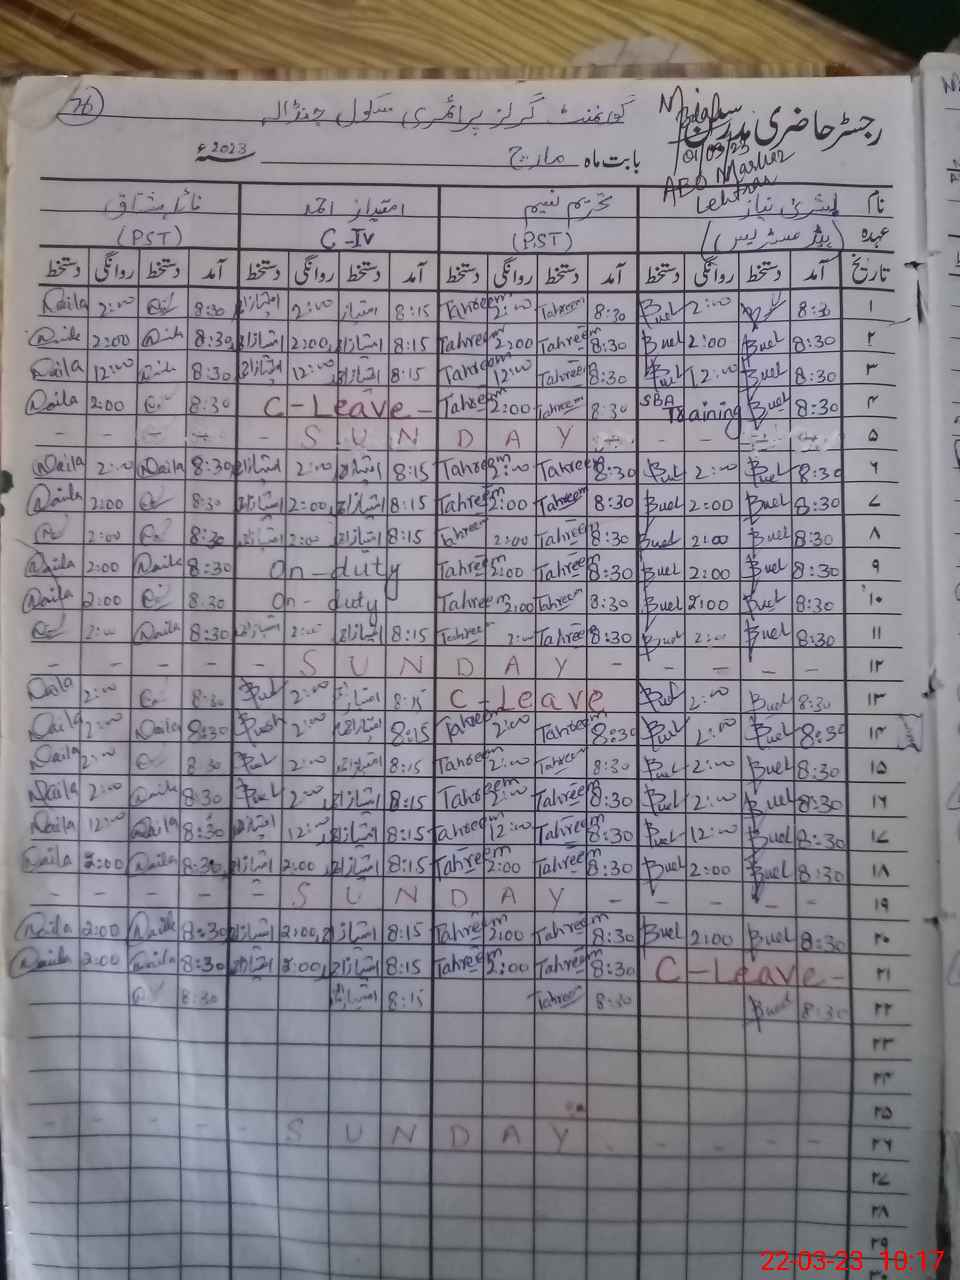 76
گورنمنٹ گرلز پرائمری سکول جنڈالہ
رجسٹر حاضری مدرسین
01/03/23
ABO Marhez
Lehtrar
بابت ماہ مارچ سنہ 2023ء
نام بشریٰ نیاز تحریم نسیم امتیاز احمد نائلہ مشتاق
عہدہ (ہیڈ مسٹریس) (PST) C-IV (PST)
تاریخ آمد دستخط روانگی دستخط آمد دستخط روانگی دستخط آمد دستخط روانگی دستخط آمد دستخط روانگی دستخط
۱ 8:30 2:00 8:30 Tahreem 2:00 Tahreem 8:15 امتیاز 2:00 امتیاز 8:30 2:00 Naila
۲ 8:30 Buel 2:00 Buel 8:30 Tahreem 2:00 Tahreem 8:15 امتیاز 2:00 امتیاز 8:30 Naila 2:00 Naila
۳ 8:30 Buel 12:00 Buel 8:30 Tahreem 12:00 Tahreem 8:15 امتیاز 12:00 امتیاز 8:30 Naila 12:00 Naila
۴ 8:30 Buel SBA Training 8:30 Tahreem 2:00 Tahreem C-Leave- 8:30 2:00 Naila
۵ - - - - SUNDAY - - - - -
۶ 8:30 Buel 2:00 Buel 8:30 Tahreem 2:00 Tahreem 8:15 امتیاز 2:00 امتیاز 8:30 Naila 2:00 Naila
۷ 8:30 Buel 2:00 Buel 8:30 Tahreem 2:00 Tahreem 8:15 امتیاز 2:00 امتیاز 8:30 2:00 Naila
۸ 8:30 Buel 2:00 Buel 8:30 Tahreem 2:00 Tahreem 8:15 امتیاز 2:00 امتیاز 8:30 2:00
۹ 8:30 Buel 2:00 Buel 8:30 Tahreem 2:00 Tahreem On-duty 8:30 Naila 2:00 Naila
۱۰ 8:30 Buel 2:00 Buel 8:30 Tahreem 2:00 Tahreem On-duty 8:30 2:00 Naila
۱۱ 8:30 Buel 2:00 Buel 8:30 Tahreem 2:00 Tahreem 8:15 امتیاز 2:00 امتیاز 8:30 Naila 2:00
۱۲ - - - - SUNDAY - - - - -
۱۳ 8:30 Buel 2:00 Buel C-Leave 8:15 امتیاز 2:00 Buel 8:30 2:00 Naila
۱۴ 8:30 Buel 2:00 Buel 8:30 Tahreem 2:00 Tahreem 8:15 امتیاز 2:00 8:30 Naila 2:00 Naila
۱۵ 8:30 Buel 2:00 Buel 8:30 Tahreem 2:00 Tahreem 8:15 امتیاز 2:00 Buel 8:30 2:00 Naila
۱۶ 8:30 Buel 2:00 Buel 8:30 Tahreem 2:00 Tahreem 8:15 امتیاز 2:00 Buel 8:30 Naila 2:00 Naila
۱۷ 8:30 Buel 12:00 Buel 8:30 Tahreem 12:00 Tahreem 8:15 امتیاز 12:00 امتیاز 8:30 Naila 12:00 Naila
۱۸ 8:30 Buel 2:00 Buel 8:30 Tahreem 2:00 Tahreem 8:15 امتیاز 2:00 امتیاز 8:30 Naila 2:00 Naila
۱۹ - - - - SUNDAY - - - - -
۲۰ 8:30 Buel 2:00 Buel 8:30 Tahreem 2:00 Tahreem 8:15 امتیاز 2:00 امتیاز 8:30 Naila 2:00 Naila
۲۱ C-Leave- 8:30 Tahreem 2:00 Tahreem 8:15 امتیاز 2:00 امتیاز 8:30 Naila 2:00 Naila
۲۲ 8:30 Buel 8:30 Tahreem 8:15 امتیاز 8:30
۲۳
۲۴
۲۵
۲۶ - - - - SUNDAY - - - - -
۲۷
۲۸
۲۹
22-03-23 10:17